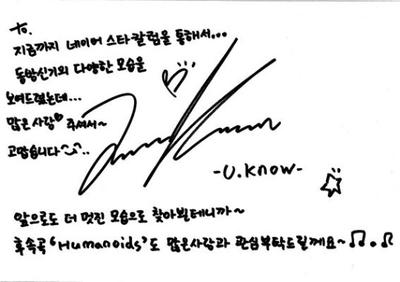 to.
지금까지 네이버 스타칼럼을 통해서...
동방신기의 다양한 모습을
보여드렸는데...
많은 사랑♡ 주셔서~
고맙습니다^^..
-U.Know-
앞으로도 더 멋진 모습으로 찾아뵐테니까~
후속곡 'Humanoids'도 많은사랑과 관심부탁드릴께요~♫.♫